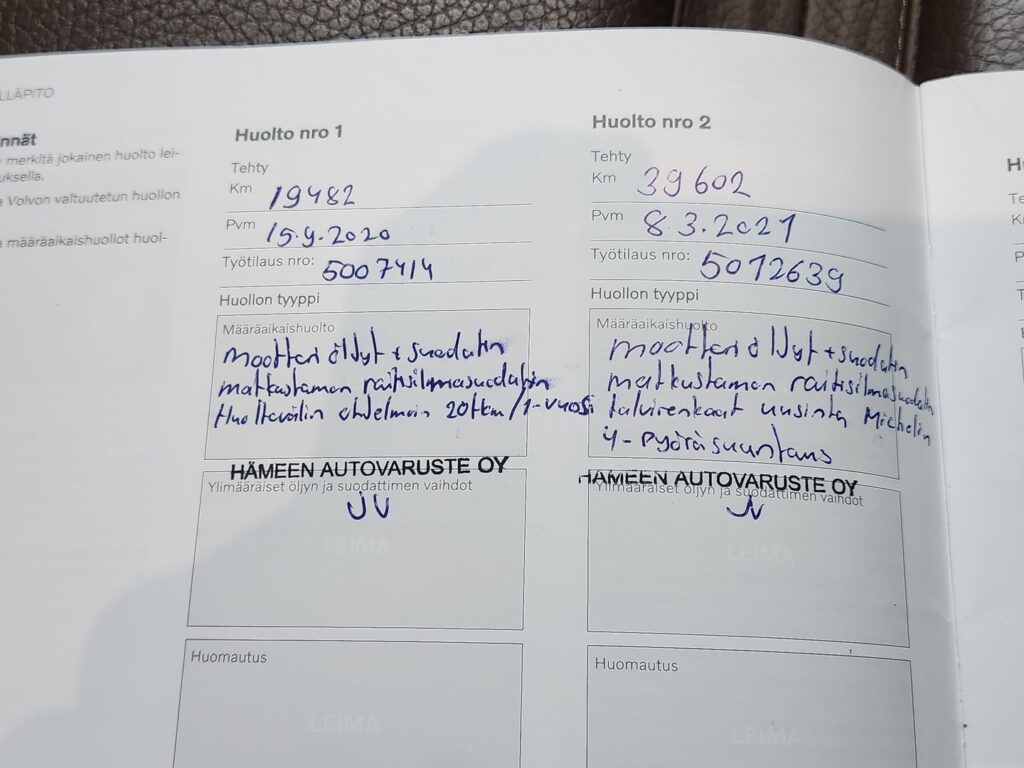 LLÄPITO
nnät
merkitä jokainen huolto lei-
uksella.
Volvon valtuutetun huollon
määräaikaishuollot huol-
Huolto nro 1
Tehty
Km 19482
Pvm 15.9.2020
Työtilaus nro: 5007414
Huollon tyyppi
Määräaikaishuolto
moottori öljyt + suodatin
matkustamon raitisilmasuodatin
Huoltovälin ohjelmoin 20tkm/1-vuosi
HÄMEEN AUTOVARUSTE OY
Ylimääräiset öljyn ja suodattimen vaihdot
JV
LEIMA
Huomautus
LEIMA
Huolto nro 2
Tehty
Km 39602
Pvm 8.3.2021
Työtilaus nro: 5012639
Huollon tyyppi
Määräaikaishuolto
moottori öljyt + suodatin
matkustamon raitisilmasuodatin
talvirenkaat uusinta Michelin
4-pyöräsuuntaus
HÄMEEN AUTOVARUSTE OY
Ylimääräiset öljyn ja suodattimen vaihdot
JV
LEIMA
Huomautus
LEIMA